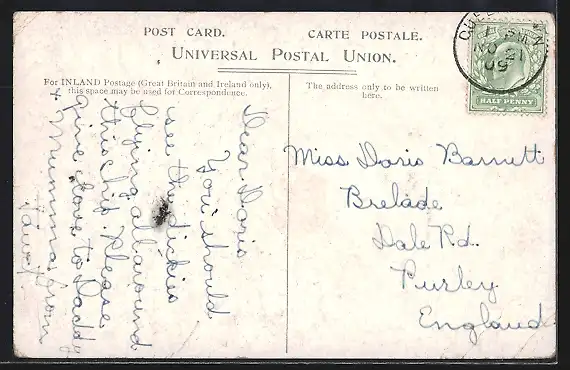 POST CARD. CARTE POSTALE.
UNIVERSAL POSTAL UNION.
For INLAND Postage (Great Britain and Ireland only),
this space may be used for Correspondence.
The address only to be written
here.
HALF PENNY
Dear Doris
You should
see the dickies
flying all around
this ship. Please
give love to Daddy
& Mumma from
Miss Doris Barnett
Brelade
Dale Rd.
Purley
England